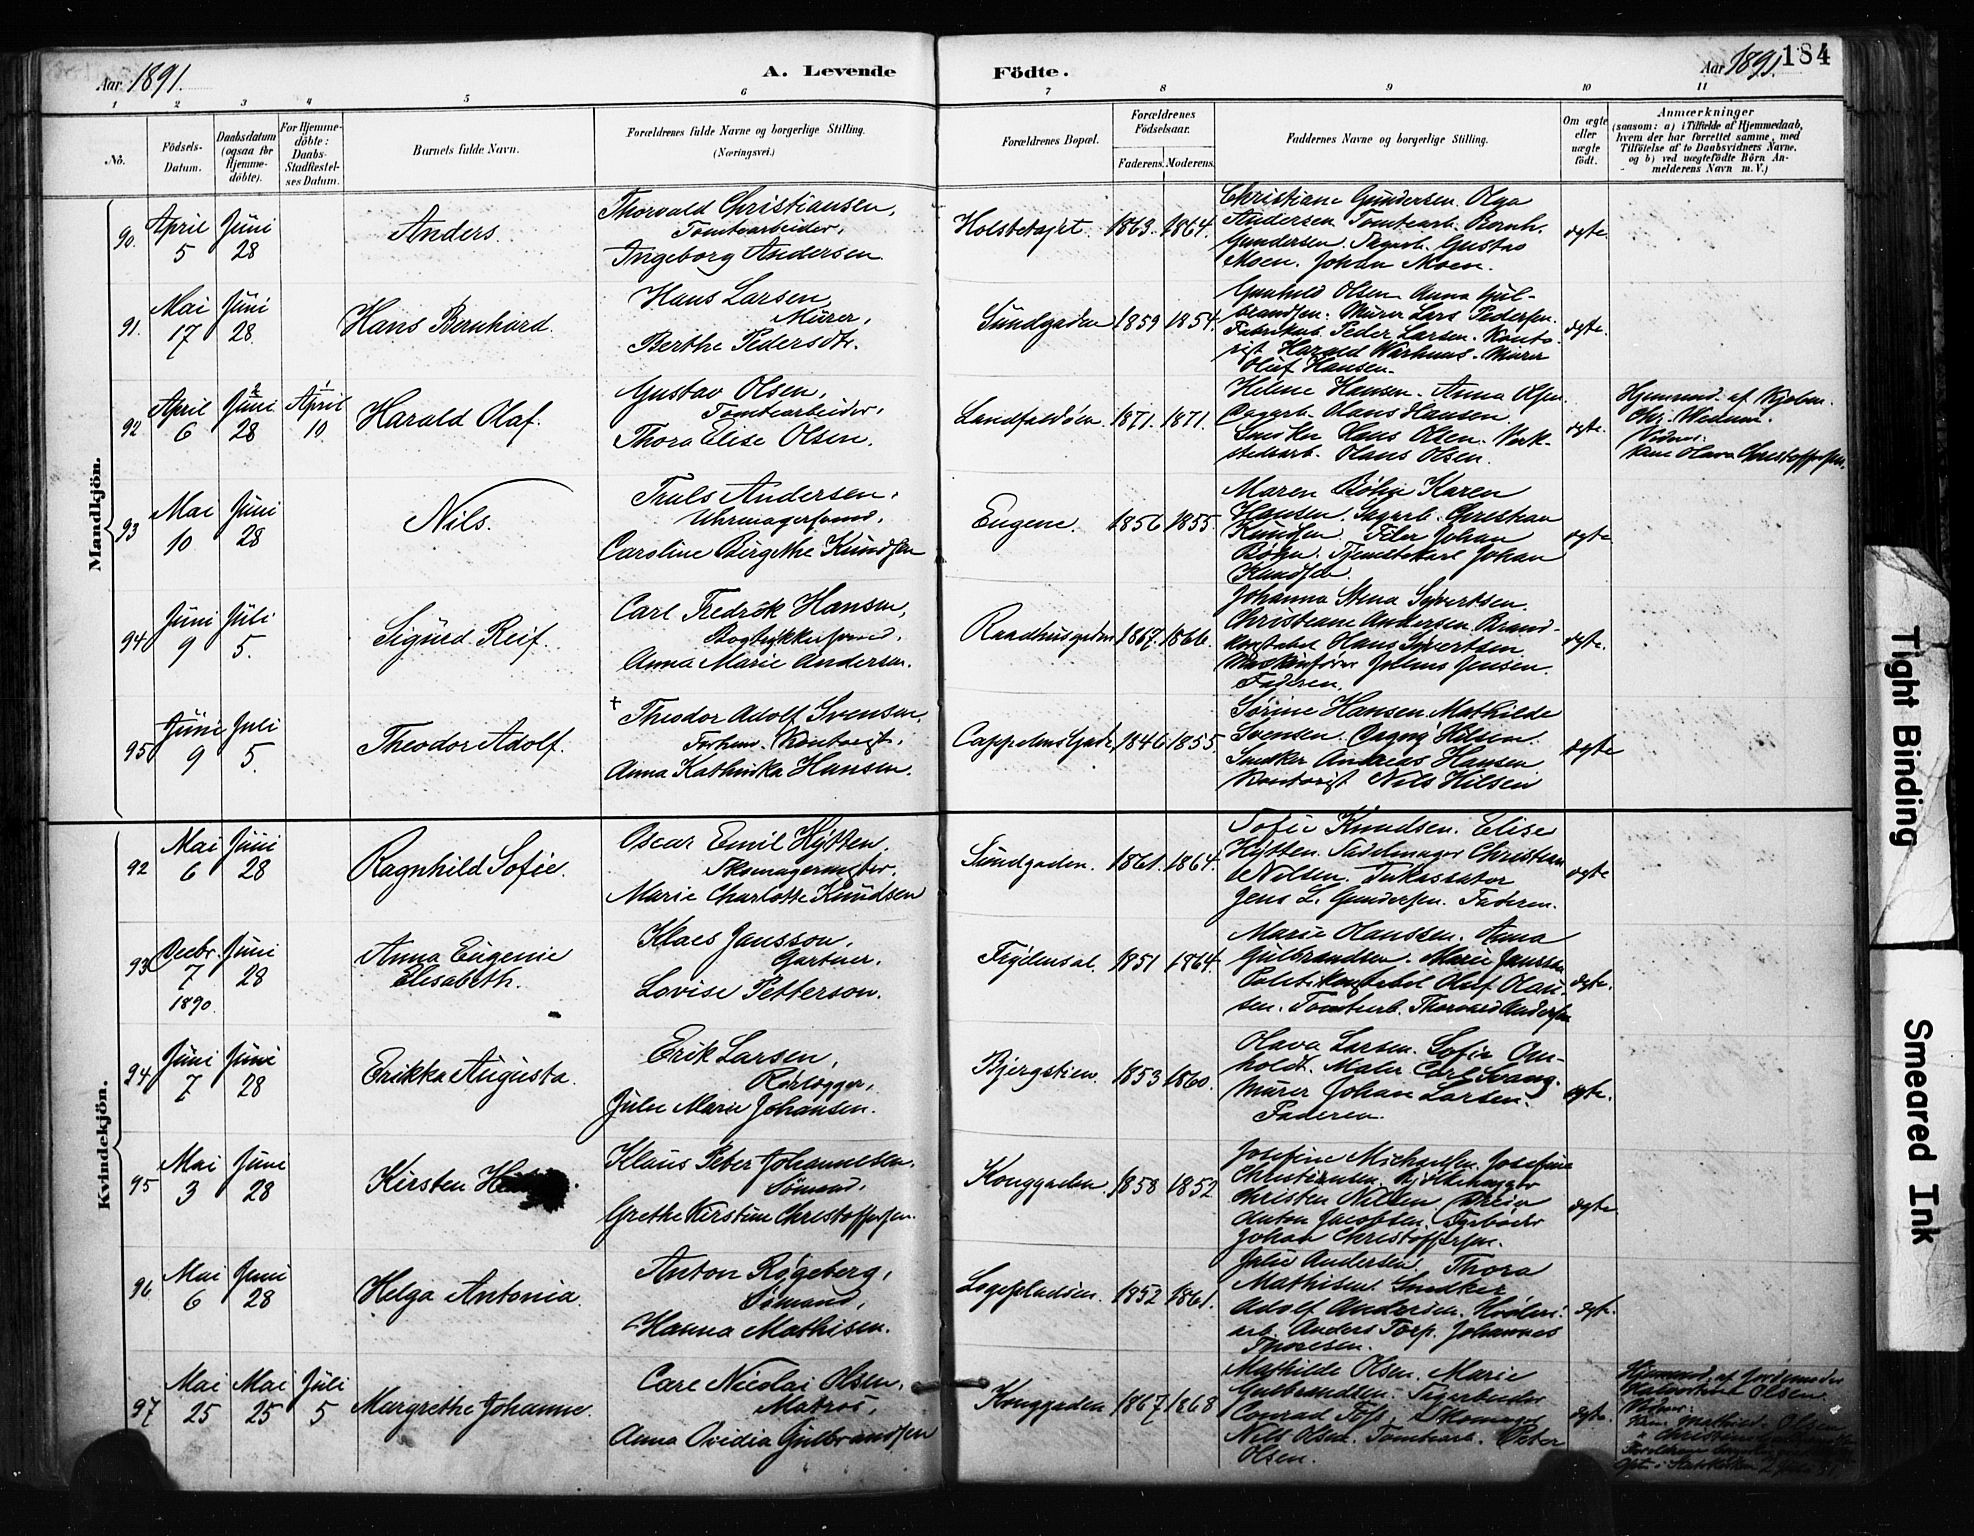 Aar 1891.
A. Levende
Födte.
Aar 1891.
184
1 2 3 4 5 6 7 8 9 10 11
No.
Födsels-
Datum.
Daabsdatum
(ogsaa for
Hjemme-
döbte).
For Hjemme-
döbte:
Daabs-
Stadfæstel-
ses Datum.
Barnets fulde Navn.
Forældrenes fulde Navne og borgerlige Stilling.
(Næringsvei.)
Forældrenes Bopæl.
Forældrenes
Födselsaar.
Faderens. Moderens.
Faddernes Navne og borgerlige Stilling.
Om ægte
eller
uægte
födt.
Anmærkninger
(saasom: a) i Tilfælde af Hjemmedaab,
hvem der har forrettet samme, med
Tilföielse af to Daabsvidners Navne,
og b) ved uægtefödte Börn An-
melderens Navn m. V.)
Mandkjön.
90. April 5 Juni 28
Anders.
Thorvald Christiansen,
Tomtearbeider,
Ingeborg Andersen.
1863. 1864.
Christiane Gundersen. Olga
Andersen. Tomtearb. Bernh.
Gundersen. Gustav
Moen. Johan Moen.
ægte.
91. Mai 17 Juni 28.
Hans Bernhard.
Hans Larsen,
Murer,
Berthe Pedersdtr.
Sundgaden 1859 1854.
Gunhild Olsen. Anna Gul-
brandsen. Murer Lars Pedersen.
Fabrikarb. Peder Larsen. Konto-
rist Harald Murer
Oluf Hansen.
ægte.
92 April 6 Juni 28 April 10
Harald Olaf.
Gustav Olsen,
Tomtearbeider,
Thora Elise Olsen.
Landfaldøen. 1871. 1871.
Helene Hansen. Anna Olsen.
Hans Hansen.
Snedker Hans Olsen. Værk-
stedsarb. Hans Olsen.
ægte.
Hjemmed. af Kjøbm.
Chr.
Vidner:
Olava Christoffersen.
93 Mai 10 Juni 28
Nils.
Truls Andersen,
Uhrmagersvend,
Caroline Birgithe Knudsen
Eugene. 1856 1855.
Maren Karen
Hansen. Christian
Knudsen. Johan
Tjenestekarl Johan
Knudsen.
ægte
94 Juni 9 Juli 5.
Sigurd Reif.
Carl Fredrik Hansen,
Bogtrykkersvend,
Anna Marie Andersen.
Raadhusgaden 1867. 1866.
Johanna Stena Syvertsen.
Christiane Andersen. Brand-
konstabel Hans Syvertsen.
Maskinfører Jensen.
Faderen.
ægte.
95 Juni 9 Juli 5.
Theodor Adolf.
† Theodor Adolf Svensen,
Forhenv. Kontorist,
Anna Kathinka Hansen.
Cappelens Gade, 1846 1855
Sørine Hansen. Mathilde
Svensen. Dagny Hilsen.
Snedker Andreas Hansen
Kontorist Nils Hilsen
ægte
Kvindekjön.
92 Mai 6 Juni 28
Ragnhild Sofie.
Oscar Emil Hytten,
Skomagermester,
Marie Charlotte Knudsen
Sundgaden. 1861. 1864.
Sofie Knudsen. Elise
Hytten. Sadelmager Christian
Nilsen. Inkassator
Jens L. Gundersen. Faderen.
ægte
93 Decbr. 7 1890 Juni 28
Anna Eugenie
Elisabeth.
Klaes Jansson,
Gartner,
Lovise Petterson.
Frydensal. 1851 1864.
Marie Hanssen. Anna
Gulbrandsen. Marie Jansson
Politikonstabel Oluf Olau-
sen. Tomtearb. Thorvald Andersen
ægte.
94 Juni 7 Juni 28
Erikka Augusta.
Erik Larsen,
Rørlægger,
Julie Marie Johansen.
Bjergstien. 1853 1860.
Olava Larsen. Sofie Om-
holdt. Maler Carl Svang.
Murer Johan Larsen.
Faderen.
ægte.
95 Mai 3 Juni 28
Kirsten
Klaus Peter Johannesen,
Sømand,
Grethe Kirstine Christoffersen.
Konggaden. 1858 1852
Josefine Michaelsen. Josefine
Christiansen.
Christen Nilsen
Anton Jacobsen. Fyrbøder
Johan Christoffersen.
ægte
96 Mai 6 Juni 28
Helga Antonia.
Anton Røgeberg,
Sømand,
Hanna Mathisen.
Løgepladsen. 1852 1861.
Julie Andersen. Thora
Mathisen. Snedker
Adolf Andersen. Høvleri-
arb. Anders Torp. Johannes
Thoresen.
ægte.
97 Mai 25 Mai 25 Juli 5
Margrethe Johanne.
Carl Nicolai Olsen,
Matros,
Anna Ovidia Gulbrandsen
Konggaden 1867 1868
Mathilde Olsen. Marie
Gulbrandsen. Sagarbeider
Conrad Foss. Skomager
Nils Olsen. Tomtearb. Peter
Olsen.
ægte.
Hjemmed. af Jordemoder
Olsen.
Vidner:
Mathilde Olsen
Tight Binding
Smeared Ink